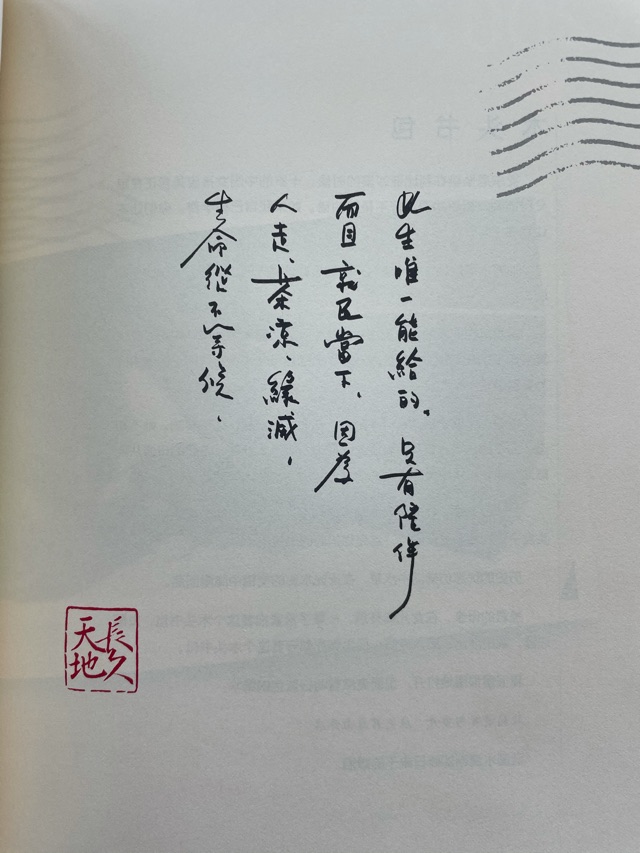 此生唯一能給的。只有陪伴
而且就是當下、因為
人走、茶涼、緣滅，
生命從不等候、
長久
天地